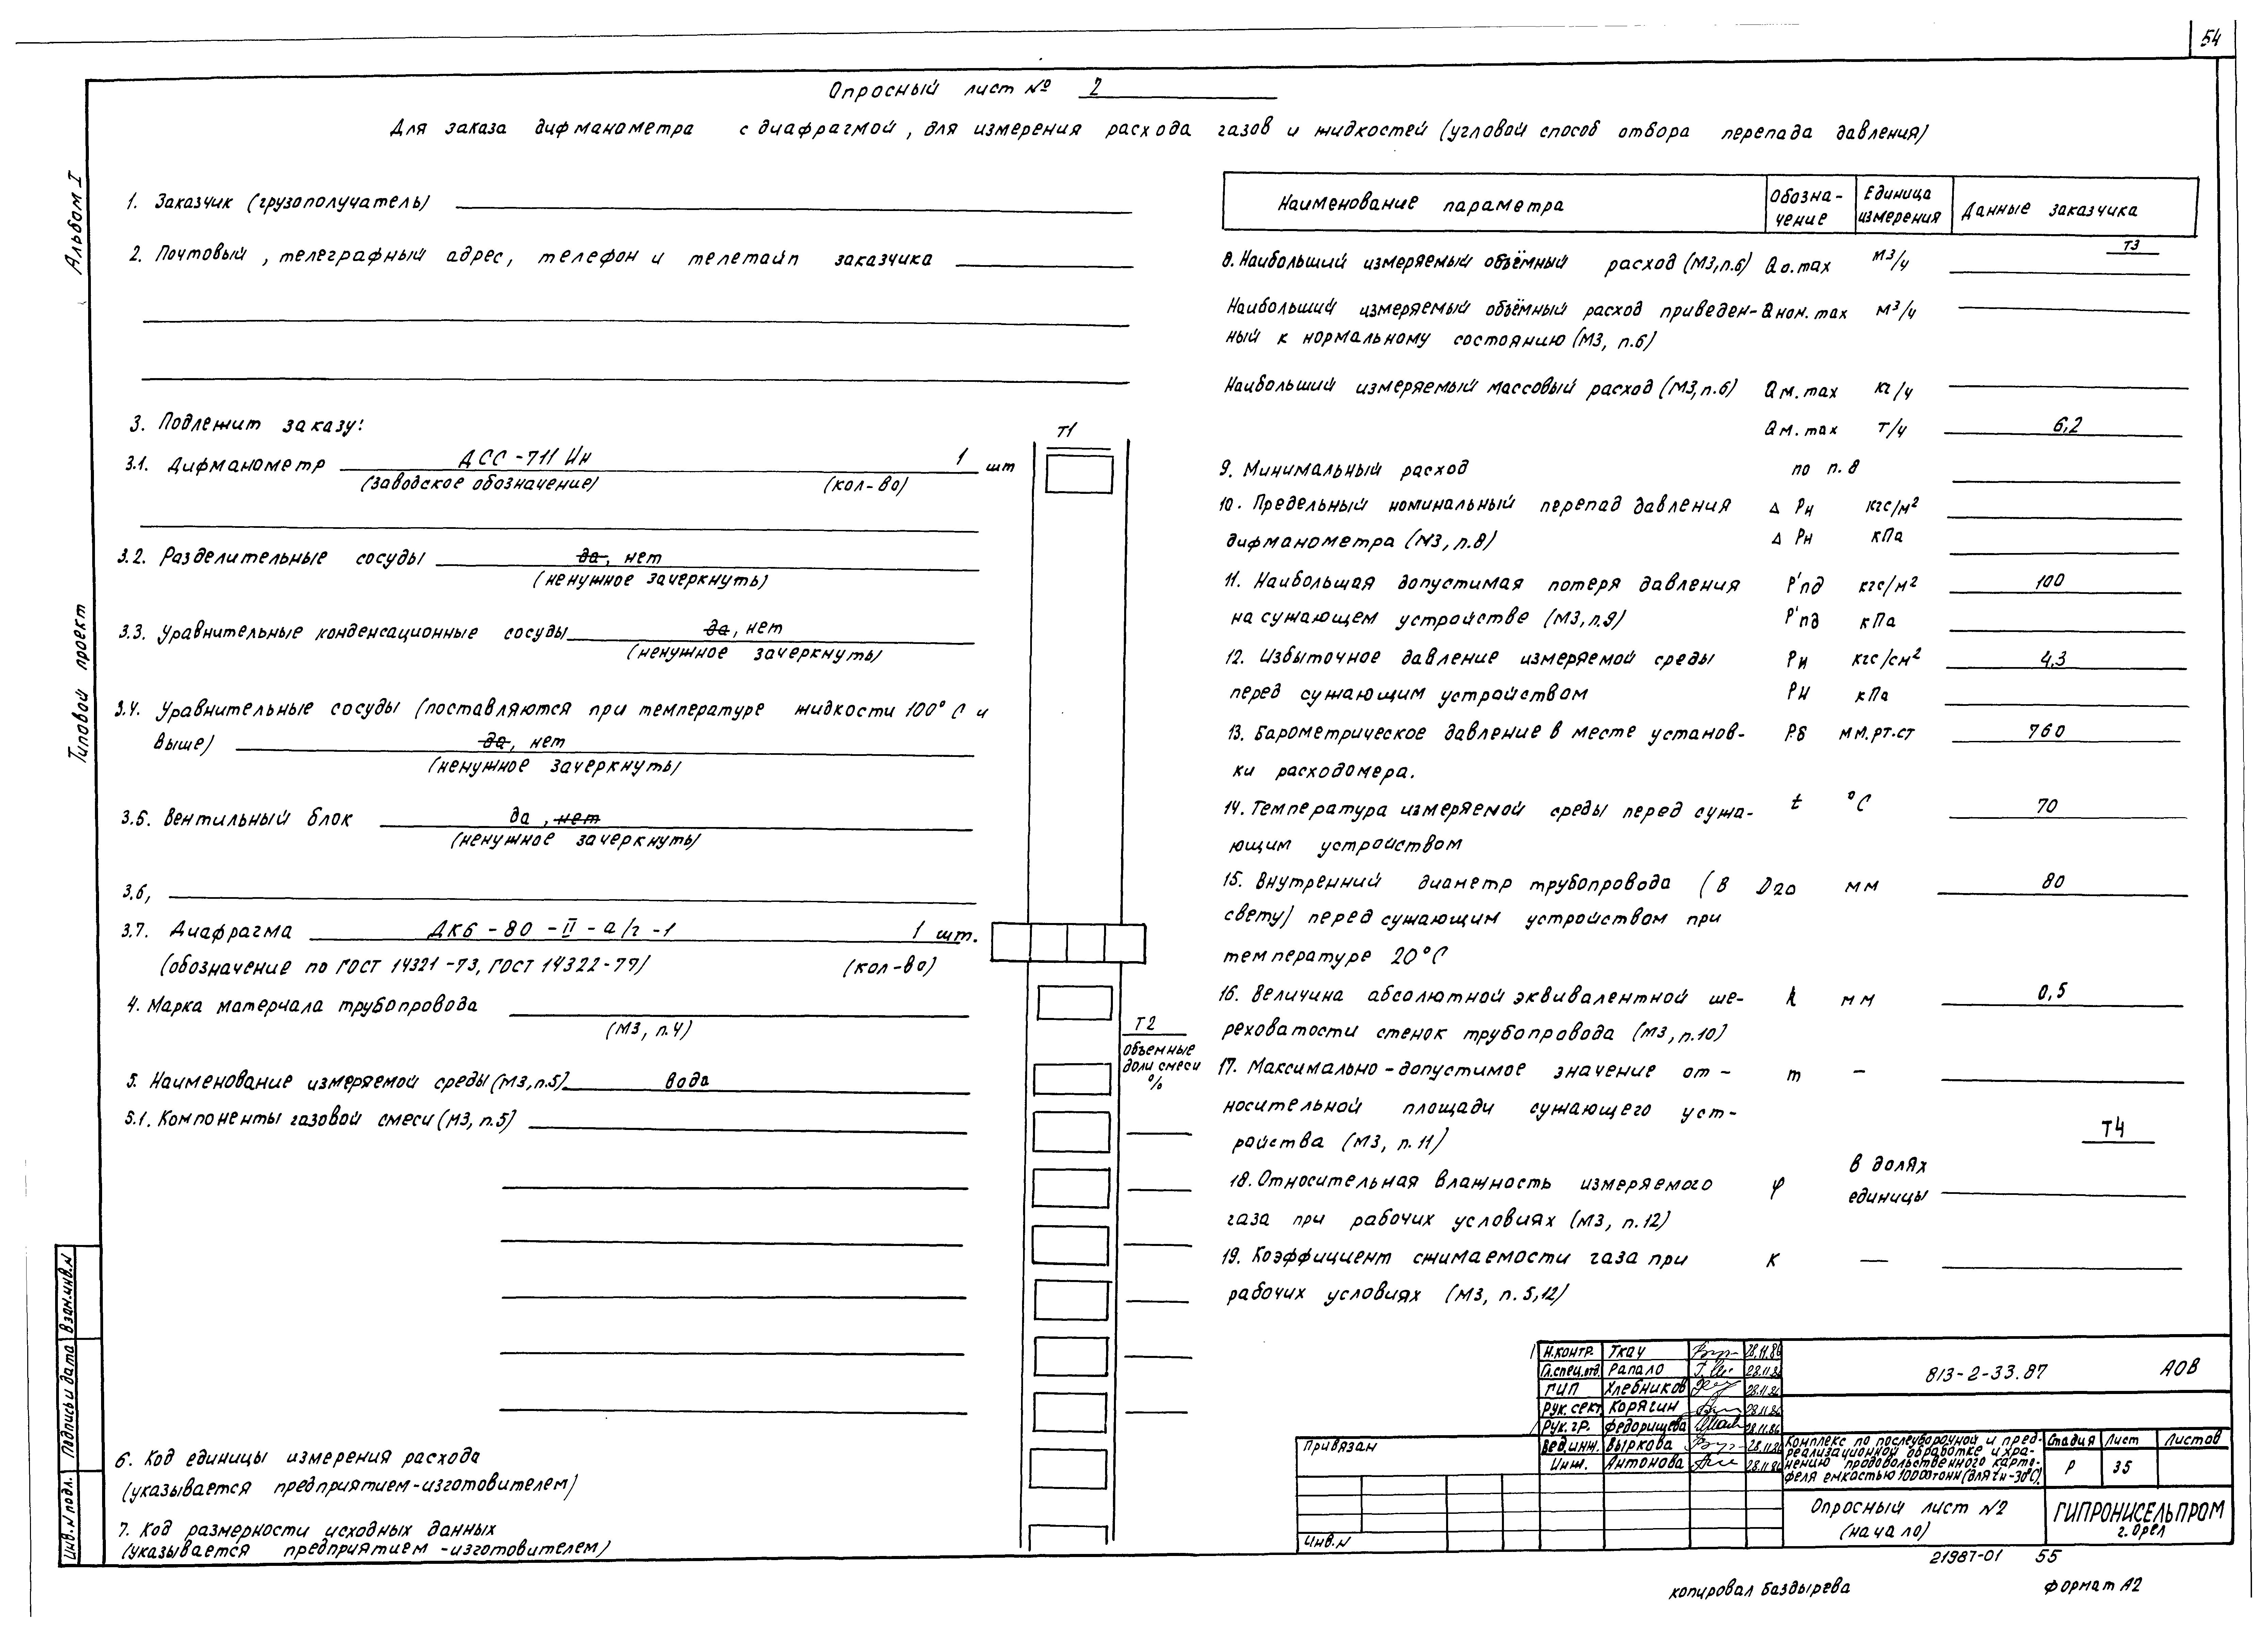 54
Опросный лист № 2
Для заказа дифманометра с диафрагмой, для измерения расхода газов и жидкостей (угловой способ отбора перепада давления)
Альбом I
Типовой проект
1. Заказчик (грузополучатель)
2. Почтовый, телеграфный адрес, телефон и телетайп заказчика
3. Подлежит заказу:
Т1
3.1. Дифманометр ДСС-711 Ин 1 шт
(заводское обозначение) (кол-во)
3.2. Разделительные сосуды да, нет
(ненужное зачеркнуть)
3.3. Уравнительные конденсационные сосуды да, нет
(ненужное зачеркнуть)
3.4. Уравнительные сосуды (поставляются при температуре жидкости 100°С и
выше) да, нет
(ненужное зачеркнуть)
3.5. Вентильный блок да, нет
(ненужное зачеркнуть)
3.6,
3.7. Диафрагма ДК6-80-II-а/г-1 1 шт.
(обозначение по ГОСТ 14321-73, ГОСТ 14322-77) (кол-во)
4. Марка материала трубопровода
(М3, п.4)
Т2
объемные
доли смеси
%
5. Наименование измеряемой среды (М3,п.5) вода
5.1. Компоненты газовой смеси (М3, п.5)
6. Код единицы измерения расхода
(указывается предприятием-изготовителем)
7. Код размерности исходных данных
(указывается предприятием-изготовителем)
Наименование параметра
Обозна-
чение
Единица
измерения
Данные заказчика
Т3
8. Наибольший измеряемый объёмный расход (М3,п.6) Qо.max м3/ч
Наибольший измеряемый объёмный расход приведен- Qном.max м3/ч
ный к нормальному состоянию (М3, п.6)
Наибольший измеряемый массовый расход (М3,п.6) Qм.max кг/ч
Qм.max т/ч 6,2
9. Минимальный расход по п.8
10. Предельный номинальный перепад давления Δ Рн кгс/м2
дифманометра (М3, п.8) Δ Рн кПа
11. Наибольшая допустимая потеря давления Р'пд кгс/м2 100
на сужающем устройстве (М3, п.9) Р'пд кПа
12. Избыточное давление измеряемой среды Ри кгс/см2 4,3
перед сужающим устройством Ри кПа
13. Барометрическое давление в месте установ- Рб мм.рт.ст 760
ки расходомера.
14. Температура измеряемой среды перед сужа- t °С 70
ющим устройством
15. Внутренний диаметр трубопровода (в D20 мм 80
свету) перед сужающим устройством при
температуре 20°С
16. Величина абсолютной эквивалентной ше- k мм 0,5
реховатости стенок трубопровода (М3, п.10)
17. Максимально-допустимое значение от- m –
носительной площади сужающего уст-
ройства (М3, п.11)
Т4
18. Относительная влажность измеряемого φ в долях единицы
газа при рабочих условиях (М3, п.12)
19. Коэффициент сжимаемости газа при К —
рабочих условиях (М3, п.5,12)
Н.контр. Ткач 28.11.86
Гл.спец.отд. Рапало 28.11.86
ГИП Хлебников 28.11.86
Рук.сект. Корягин 28.11.86
Рук.гр. Федорищева 28.11.86
Вед.инж. Выркова 28.11.86
Инж. Антонова 28.11.86
813-2-33.87 АОВ
Комплекс по послеуборочной и пред-
реализационной обработке и хра-
нению продовольственного карто-
феля емкостью 10000тонн (для tн-30°С)
Стадия Лист Листов
Р 35
Опросный лист №2
(начало)
ГИПРОНИСЕЛЬПРОМ
г. Орел
Привязан
Инв.N
Инв.N подл. Подпись и дата Взам.инв.N
21987-01 55
копировал Баздырева Формат А2